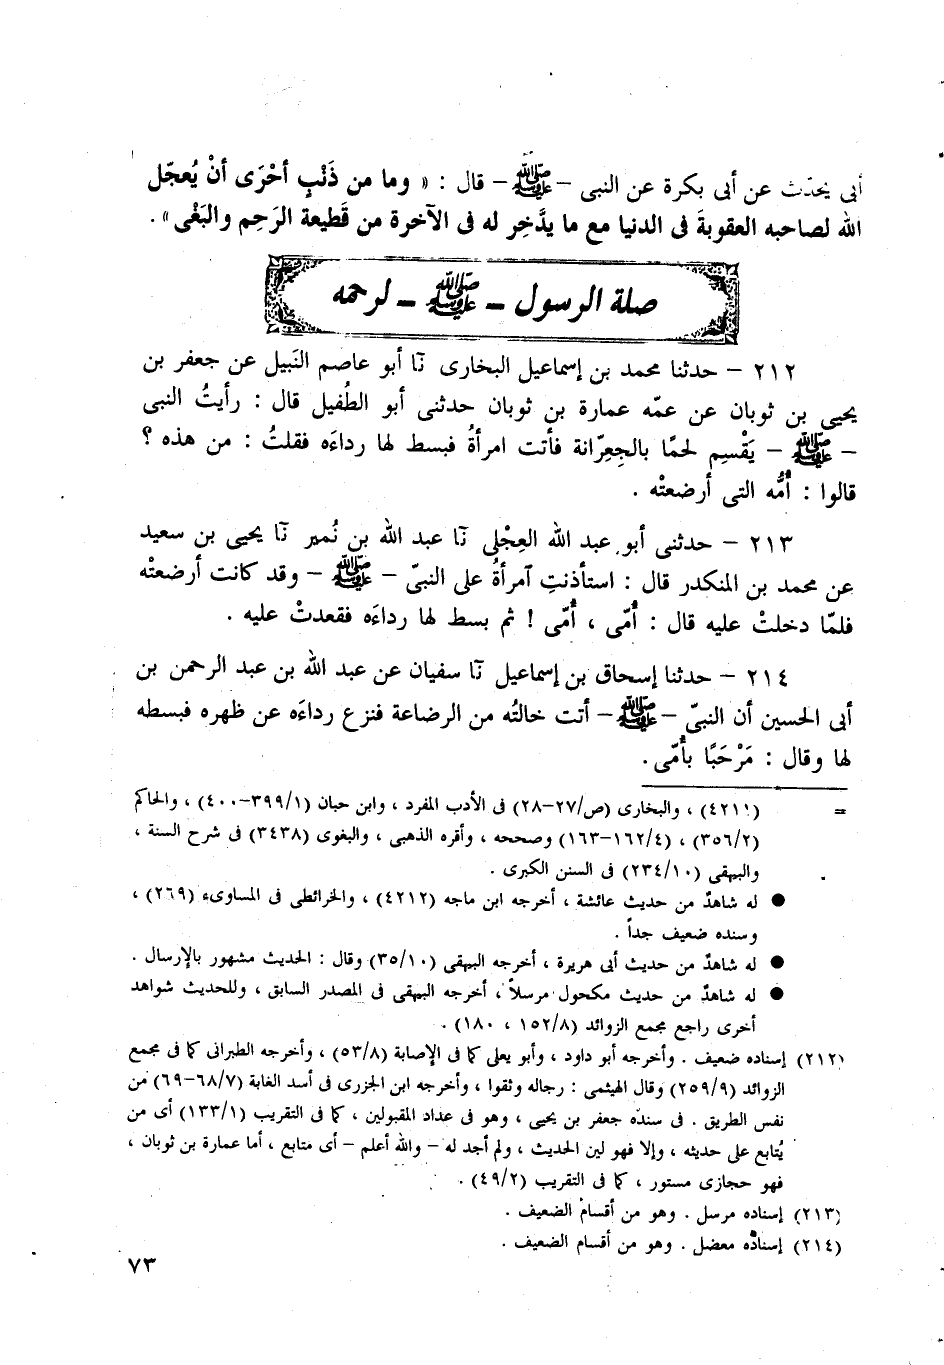 أبى يحدّث عن أبى بكرة عن النبى – ﷺ – قال : « وما من ذَنْبٍ أحْرَى أنْ يُعجّل
الله لصاحبه العقوبةَ فى الدنيا مع ما يدَّخِر له فى الآخرة من قَطيعة الرَحِم والبَغْى » .
صلة الرسول – ﷺ – لرحمه
٢١٢ – حدثنا محمد بن إسماعيل البخارى نَا أبو عاصم النَبيل عن جعفر بن
يحيى بن ثوبان عن عمّه عمارة بن ثوبان حدثنى أبو الطُفيل قال : رأيتُ النبى
– ﷺ – يَقْسِم لحمًا بالجِعِرّانة فأتت امرأةُ فبسط لها رداءَه فقلتُ : من هذه ؟
قالوا : أُمُّه التى أرضعتْه .
٢١٣ – حدثنى أبو عبد الله العِجْلى نَا عبد الله بن نُمير نَا يحيى بن سعيد
عن محمد بن المنكدر قال : استأذنتِ آمرأةُ على النبىّ – ﷺ – وقد كانت أرضعتْه
فلمّا دخلتْ عليه قال : أُمّى ، أُمّى ! ثم بسط لها رداءَه فقعدتْ عليه .
٢١٤ – حدثنا إسحاق بن إسماعيل نَا سفيان عن عبد الله بن عبد الرحمن بن
أبى الحسين أن النبىّ – ﷺ – أتت خالتُه من الرضاعة فنزع رداءَه عن ظهره فبسطه
لها وقال : مَرْحَبًا بأُمّى .
= (٤٢١١) ، والبخارى (ص/٢٧–٢٨) فى الأدب المفرد ، وابن حبان (٣٩٩/١–٤٠٠) ، والحاكم
(٣٥٦/٢) ، (١٦٢/٤–١٦٣) وصححه ، وأقره الذهبى ، والبغوى (٣٤٣٨) فى شرح السنة ،
والبيهقى (٢٣٤/١٠) فى السنن الكبرى .
● له شاهدٌ من حديث عائشة ، أخرجه ابن ماجه (٤٢١٢) ، والخرائطى فى المساوىء (٢٦٩) ،
وسنده ضعيف جداً .
● له شاهدٌ من حديث أبى هريرة ، أخرجه البيهقى (٣٥/١٠) وقال : الحديث مشهور بالإرسال .
● له شاهدٌ من حديث مكحول مرسلاً ، أخرجه البيهقى فى المصدر السابق ، وللحديث شواهد
أخرى راجع مجمع الزوائد (١٥٢/٨ ، ١٨٠) .
(٢١٢) إسناده ضعيف . وأخرجه أبو داود ، وأبو يعلى كما فى الإصابة (٥٣/٨) ، وأخرجه الطبرانى كما فى مجمع
الزوائد (٢٥٩/٩) وقال الهيثمى : رجاله وثقوا ، وأخرجه ابن الجزرى فى أسد الغابة (٦٨/٧–٦٩) من
نفس الطريق . فى سنده جعفر بن يحيى ، وهو فى عداد المقبولين ، كما فى التقريب (١٣٣/١) أى من
يُتابع على حديثه ، وإلا فهو لين الحديث ، ولم أجد له – والله أعلم – أى متابع ، أما عمارة بن ثوبان ،
فهو حجازى مستور ، كما فى التقريب (٤٩/٢) .
(٢١٣) إسناده مرسل . وهو من أقسام الضعيف .
(٢١٤) إسناده معضل . وهو من أقسام الضعيف .
٧٣